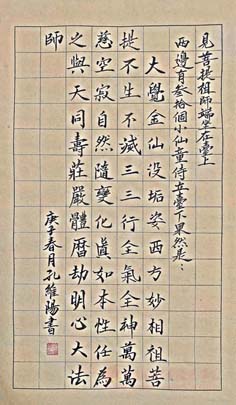 見菩提祖師端坐在臺上
两邊有叁拾個小仙童侍立臺下果然是：
大覺金仙没垢姿西方妙相祖菩
提不生不滅三三行全氣全神萬萬
慈空寂自然隨變化眞如本性任為
之與天同壽莊嚴體曆劫明心大法
師
庚子春月孔維陽書